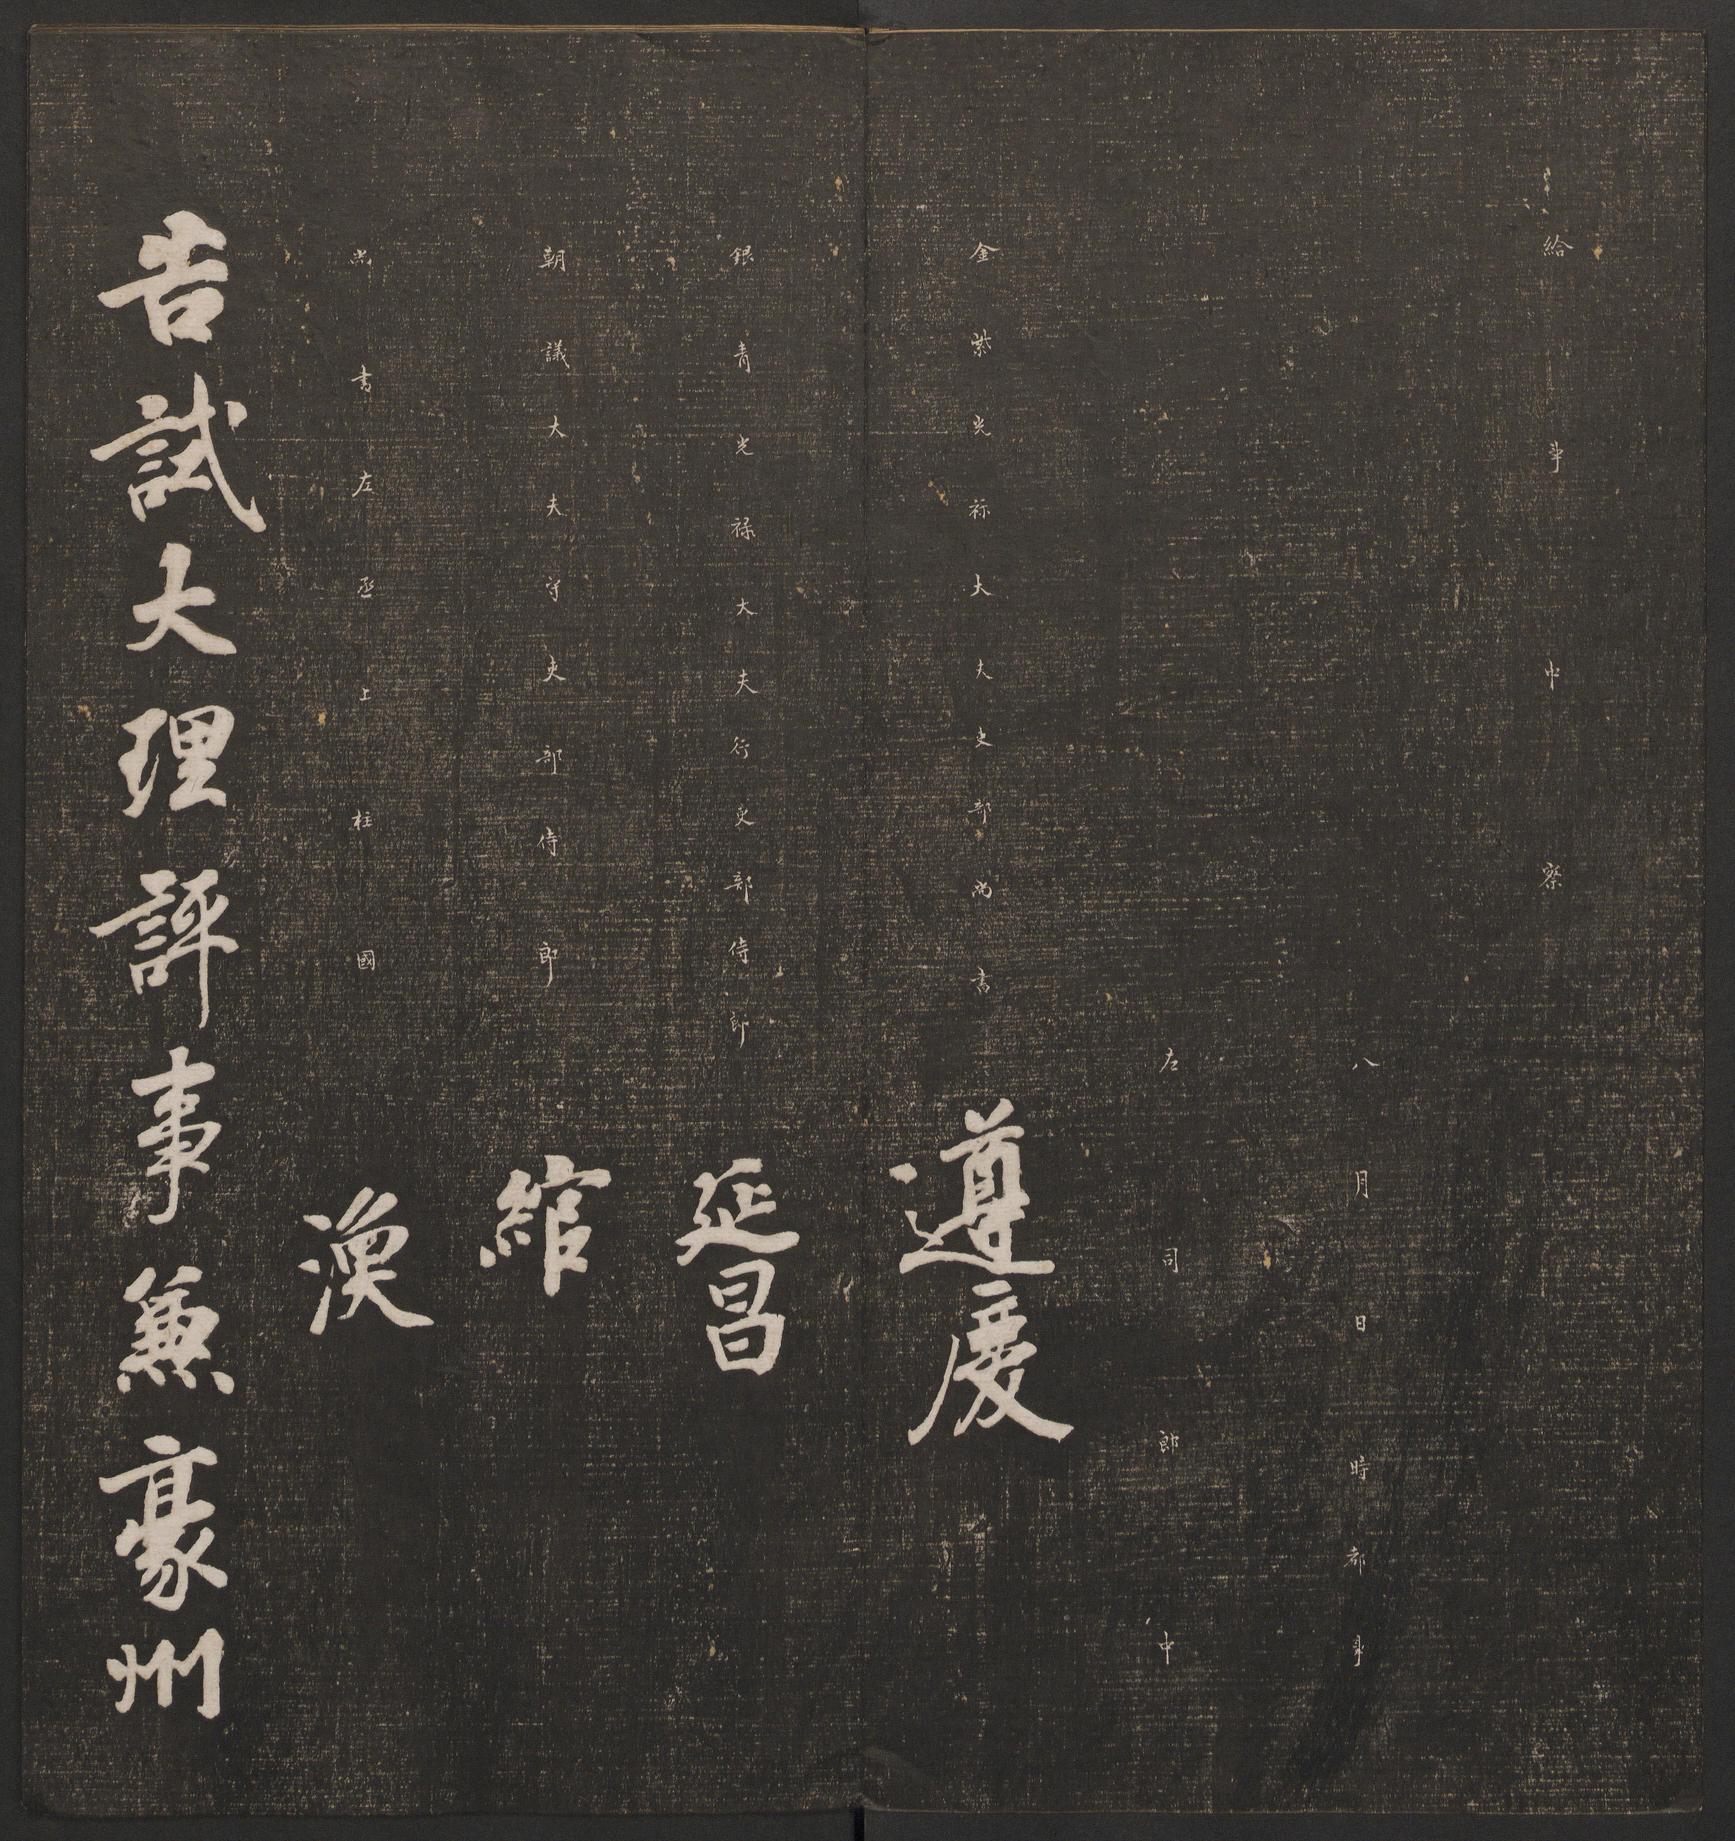 給事中察
八月日時都事
左司郎中
金紫光祿大夫吏部尚書遵慶
銀青光祿大夫行吏部侍郎延昌
朝議大夫守吏部侍郎綰
尚書左丞上柱國渙
告試大理評事兼豪州